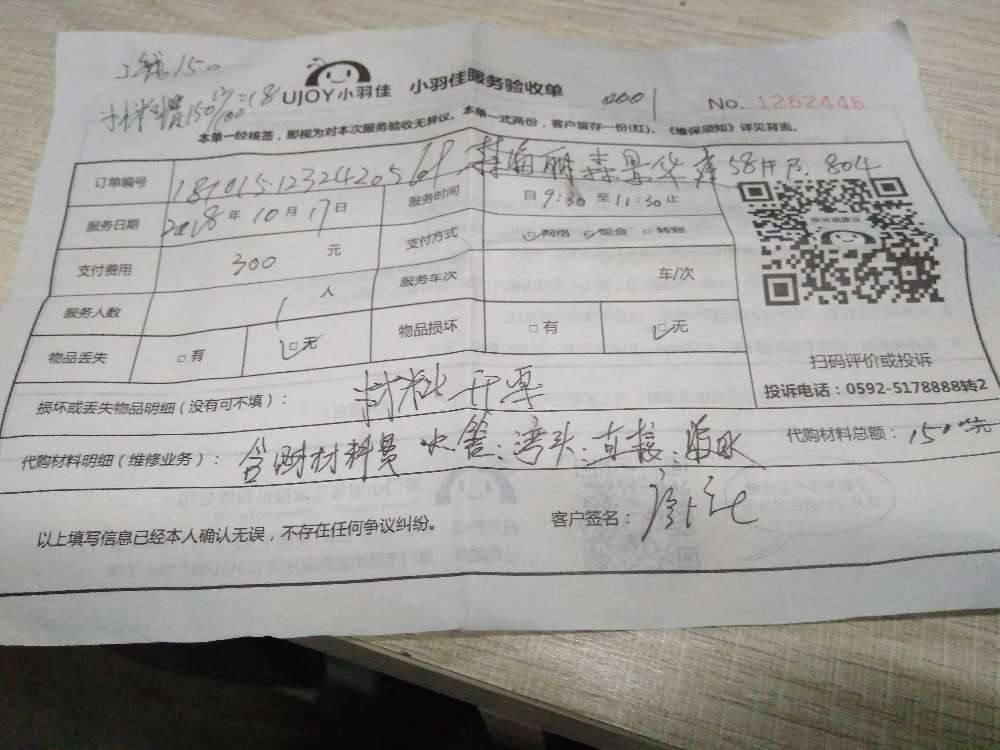 工钱150
材料费150
UJOY小羽佳 小羽佳服务验收单 0001 No. 1262446
本单一经核签,即视为对本次服务验收无异议。本单一式两份,客户留存一份(红)。《维保须知》详见背面。
订单编号 181015123242056
58 804
服务日期 2018年10月17日 服务时间 自9:30至11:30止
支付费用 300 元 支付方式 网络 现金 □转账
服务人数 1 人 服务车次 车/次
物品丢失 □有 □无 物品损坏 □有 □无
投诉或建议
扫码评价或投诉
投诉电话:0592-5178888转2
损坏或丢失物品明细(没有可不填): 材料
代购材料明细(维修业务): 含附材料费 水管:湾头:直接:胶水 代购材料总额: 150元
以上填写信息已经本人确认无误,不存在任何争议纠纷。 客户签名: